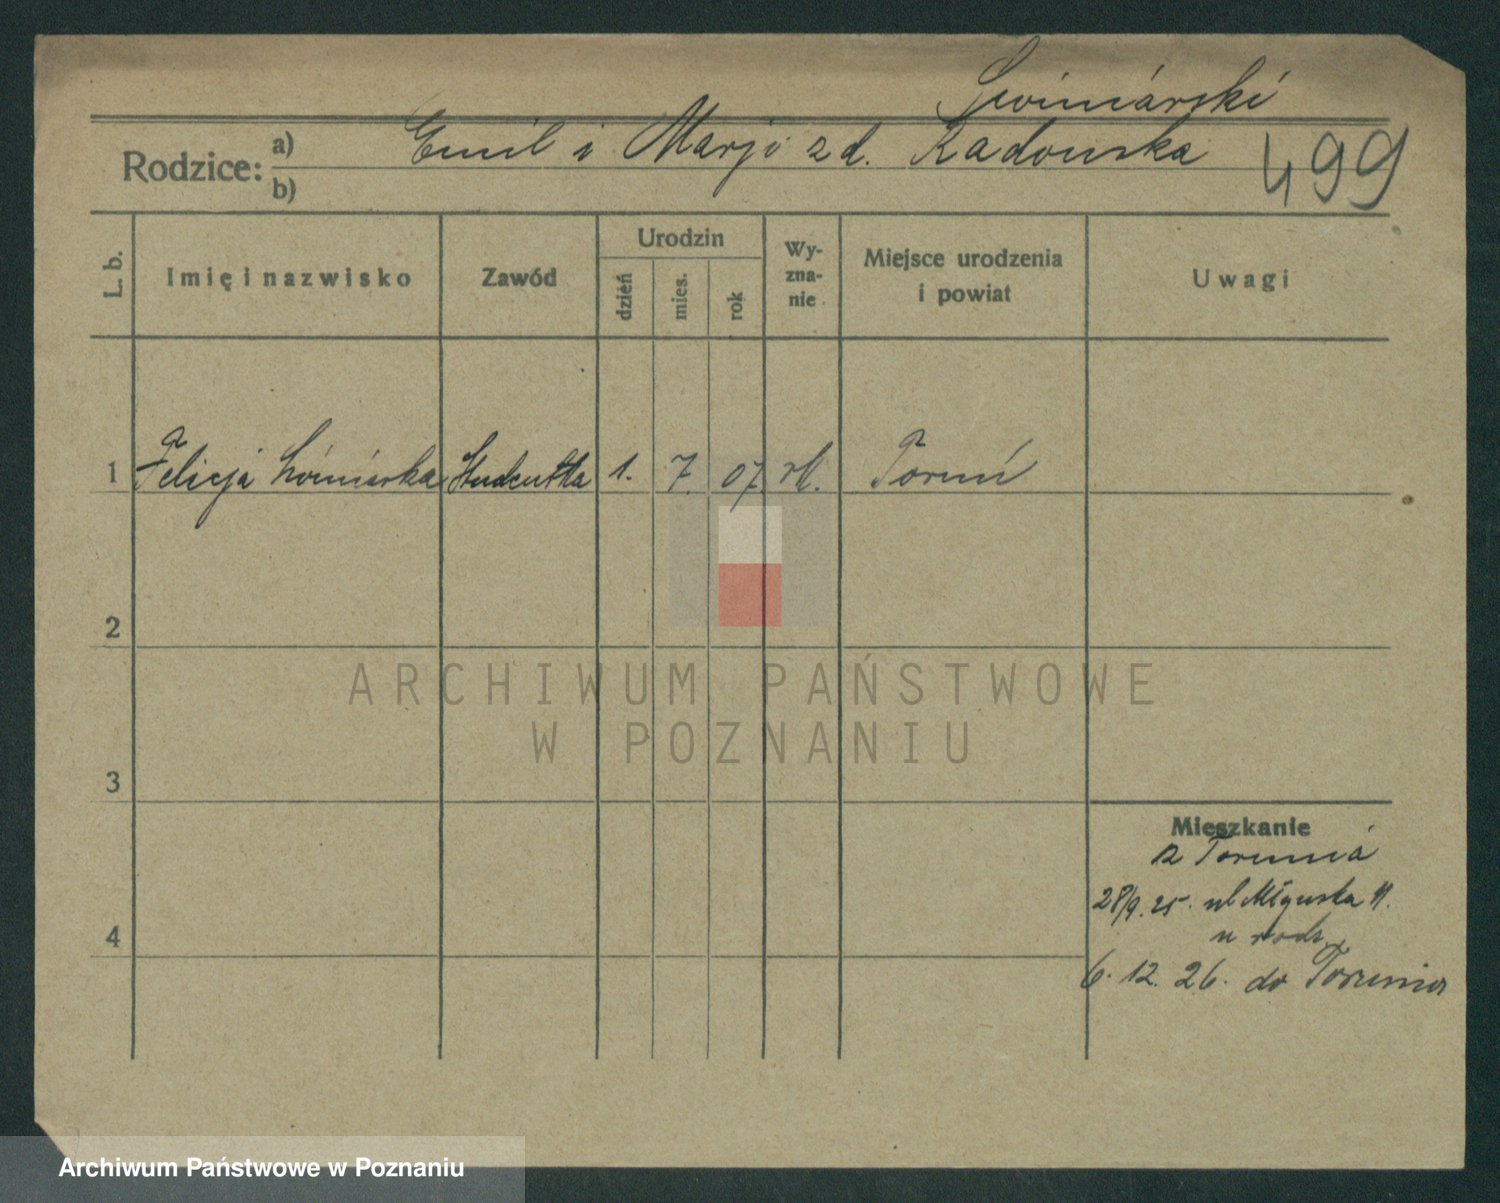 Świniarski
Rodzice: a) Emil i Marji zd. Radomska
b)
499
L. b.
Imię i nazwisko
Zawód
Urodzin
dzień
mies.
rok
Wy-
zna-
nie
Miejsce urodzenia
i powiat
Uwagi
1 Felicja Studentka 1. 7. 07. rk. Toruń
2
ARCHIWUM PAŃSTWOWE
W POZNANIU
3
Mieszkanie
z Torunia
28/9. 25. ul 11.
u rodz.
4
6. 12. 26. do Torunia
Archiwum Państwowe w Poznaniu